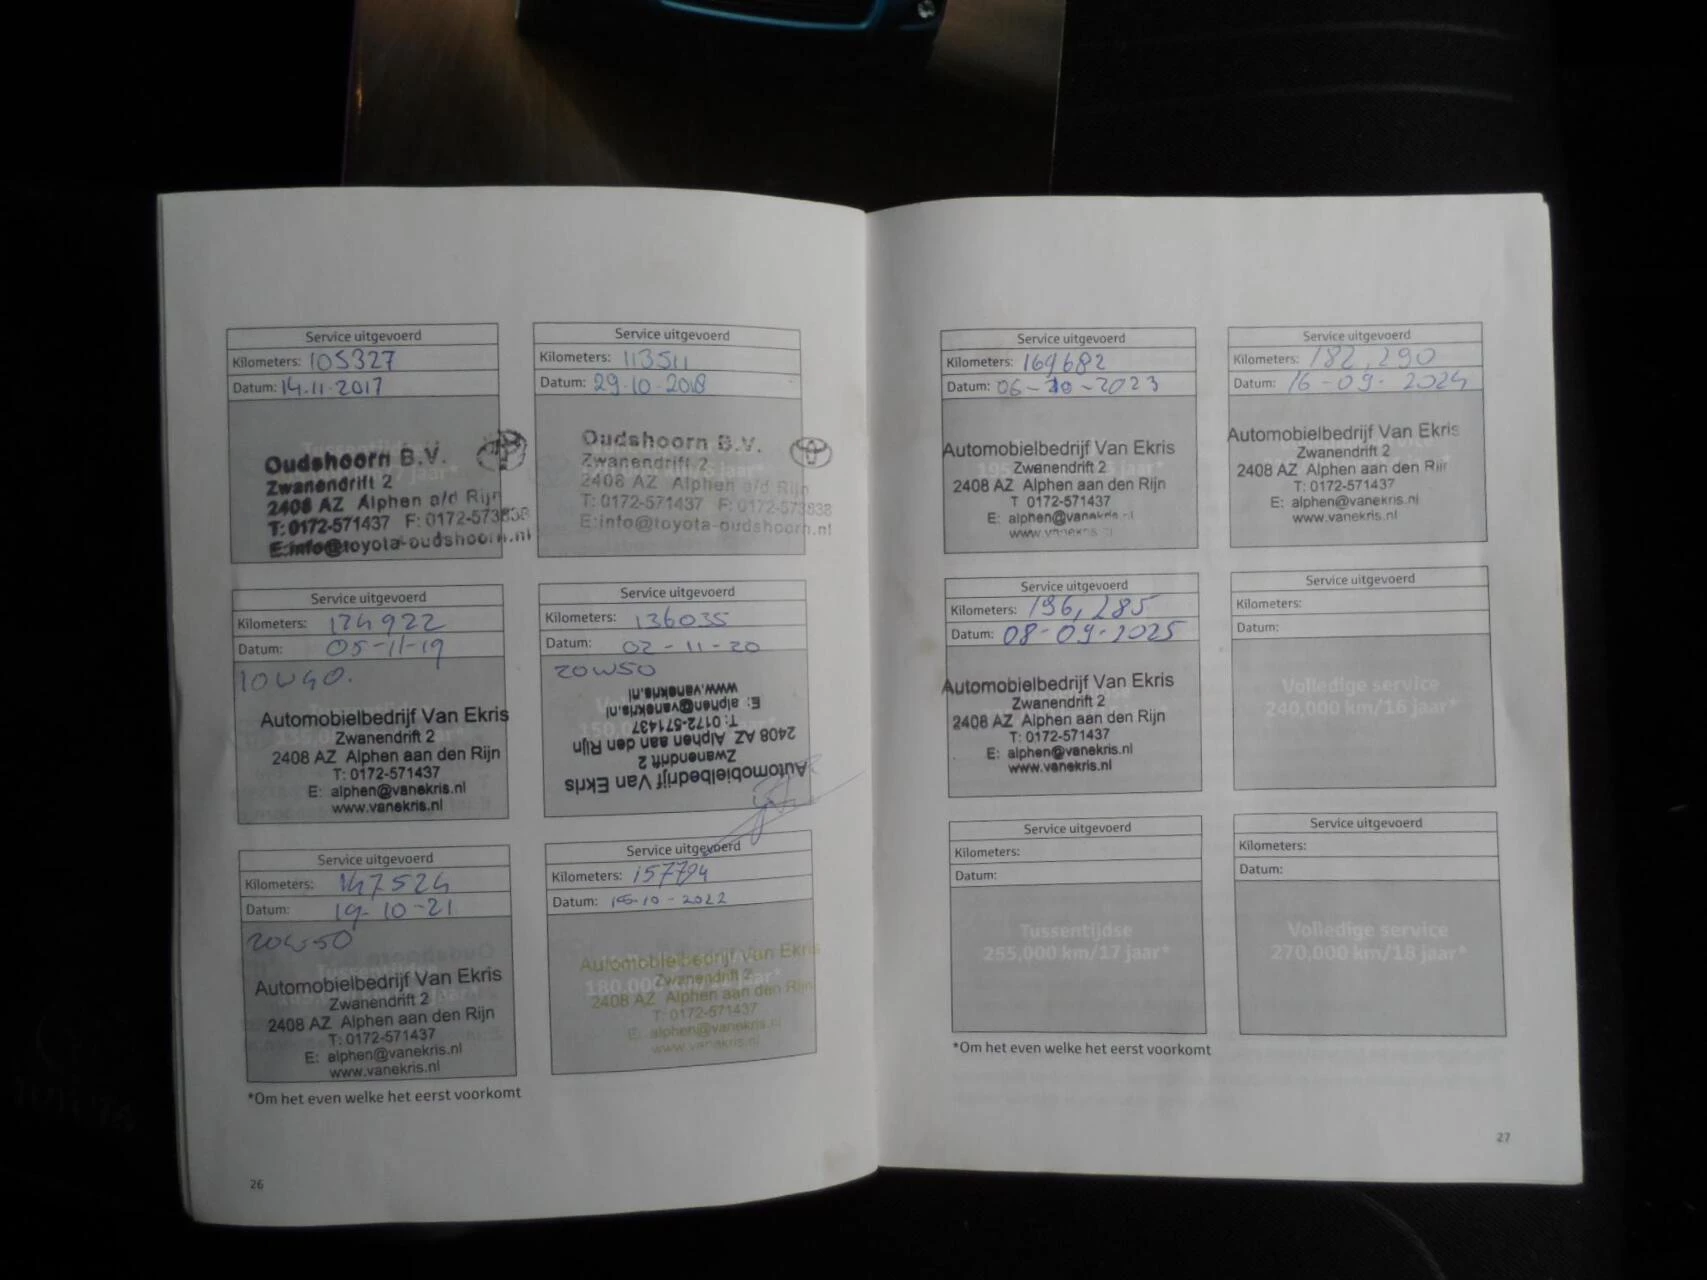 Service uitgevoerd
Kilometers: 105327
Datum: 14.11.2017
Oudshoorn B.V.
Zwanendrift 2
2408 AZ Alphen a/d Rijn
T: 0172-571437 F: 0172-573838
E:info@toyota-oudshoorn.nl
Service uitgevoerd
Kilometers: 113511
Datum: 29-10-2018
Oudshoorn B.V.
Zwanendrift 2
2408 AZ Alphen a/d Rijn
T: 0172-571437 F: 0172-573838
E:info@toyota-oudshoorn.nl
Service uitgevoerd
Kilometers: 124922
Datum: 05-11-19
10W40.
Automobielbedrijf Van Ekris
Zwanendrift 2
2408 AZ Alphen aan den Rijn
T: 0172-571437
E: alphen@vanekris.nl
www.vanekris.nl
Service uitgevoerd
Kilometers: 136035
Datum: 02-11-20
20W50
Automobielbedrijf Van Ekris
Zwanendrift 2
2408 AZ Alphen aan den Rijn
T: 0172-571437
E: alphen@vanekris.nl
www.vanekris.nl
Service uitgevoerd
Kilometers: 147524
Datum: 19-10-21
20W50
Automobielbedrijf Van Ekris
Zwanendrift 2
2408 AZ Alphen aan den Rijn
T: 0172-571437
E: alphen@vanekris.nl
www.vanekris.nl
Service uitgevoerd
Kilometers: 157794
Datum: -10-2022
Automobielbedrijf Van Ekris
Zwanendrift 2
180.000
2408 AZ Alphen aan den Rijn
T: 0172-571437
E: alphen@vanekris.nl
www.vanekris.nl
*Om het even welke het eerst voorkomt
26
Service uitgevoerd
Kilometers: 169682
Datum: 06-10-2023
Automobielbedrijf Van Ekris
Zwanendrift 2
2408 AZ Alphen aan den Rijn
T 0172-571437
E: alphen@vanekris.nl
www.vanekris.nl
Service uitgevoerd
Kilometers: 182,290
Datum: 16-09-2024
Automobielbedrijf Van Ekris
Zwanendrift 2
2408 AZ Alphen aan den Rijn
T: 0172-571437
E: alphen@vanekris.nl
www.vanekris.nl
Service uitgevoerd
Kilometers: 196,285
Datum: 08-09-2025
Automobielbedrijf Van Ekris
Zwanendrift 2
2408 AZ Alphen aan den Rijn
T: 0172-571437
E: alphen@vanekris.nl
www.vanekris.nl
Service uitgevoerd
Kilometers:
Datum:
Volledige service
240,000 km/16 jaar*
Service uitgevoerd
Kilometers:
Datum:
Tussentijdse
255,000 km/17 jaar*
Service uitgevoerd
Kilometers:
Datum:
Volledige service
270,000 km/18 jaar*
*Om het even welke het eerst voorkomt
27